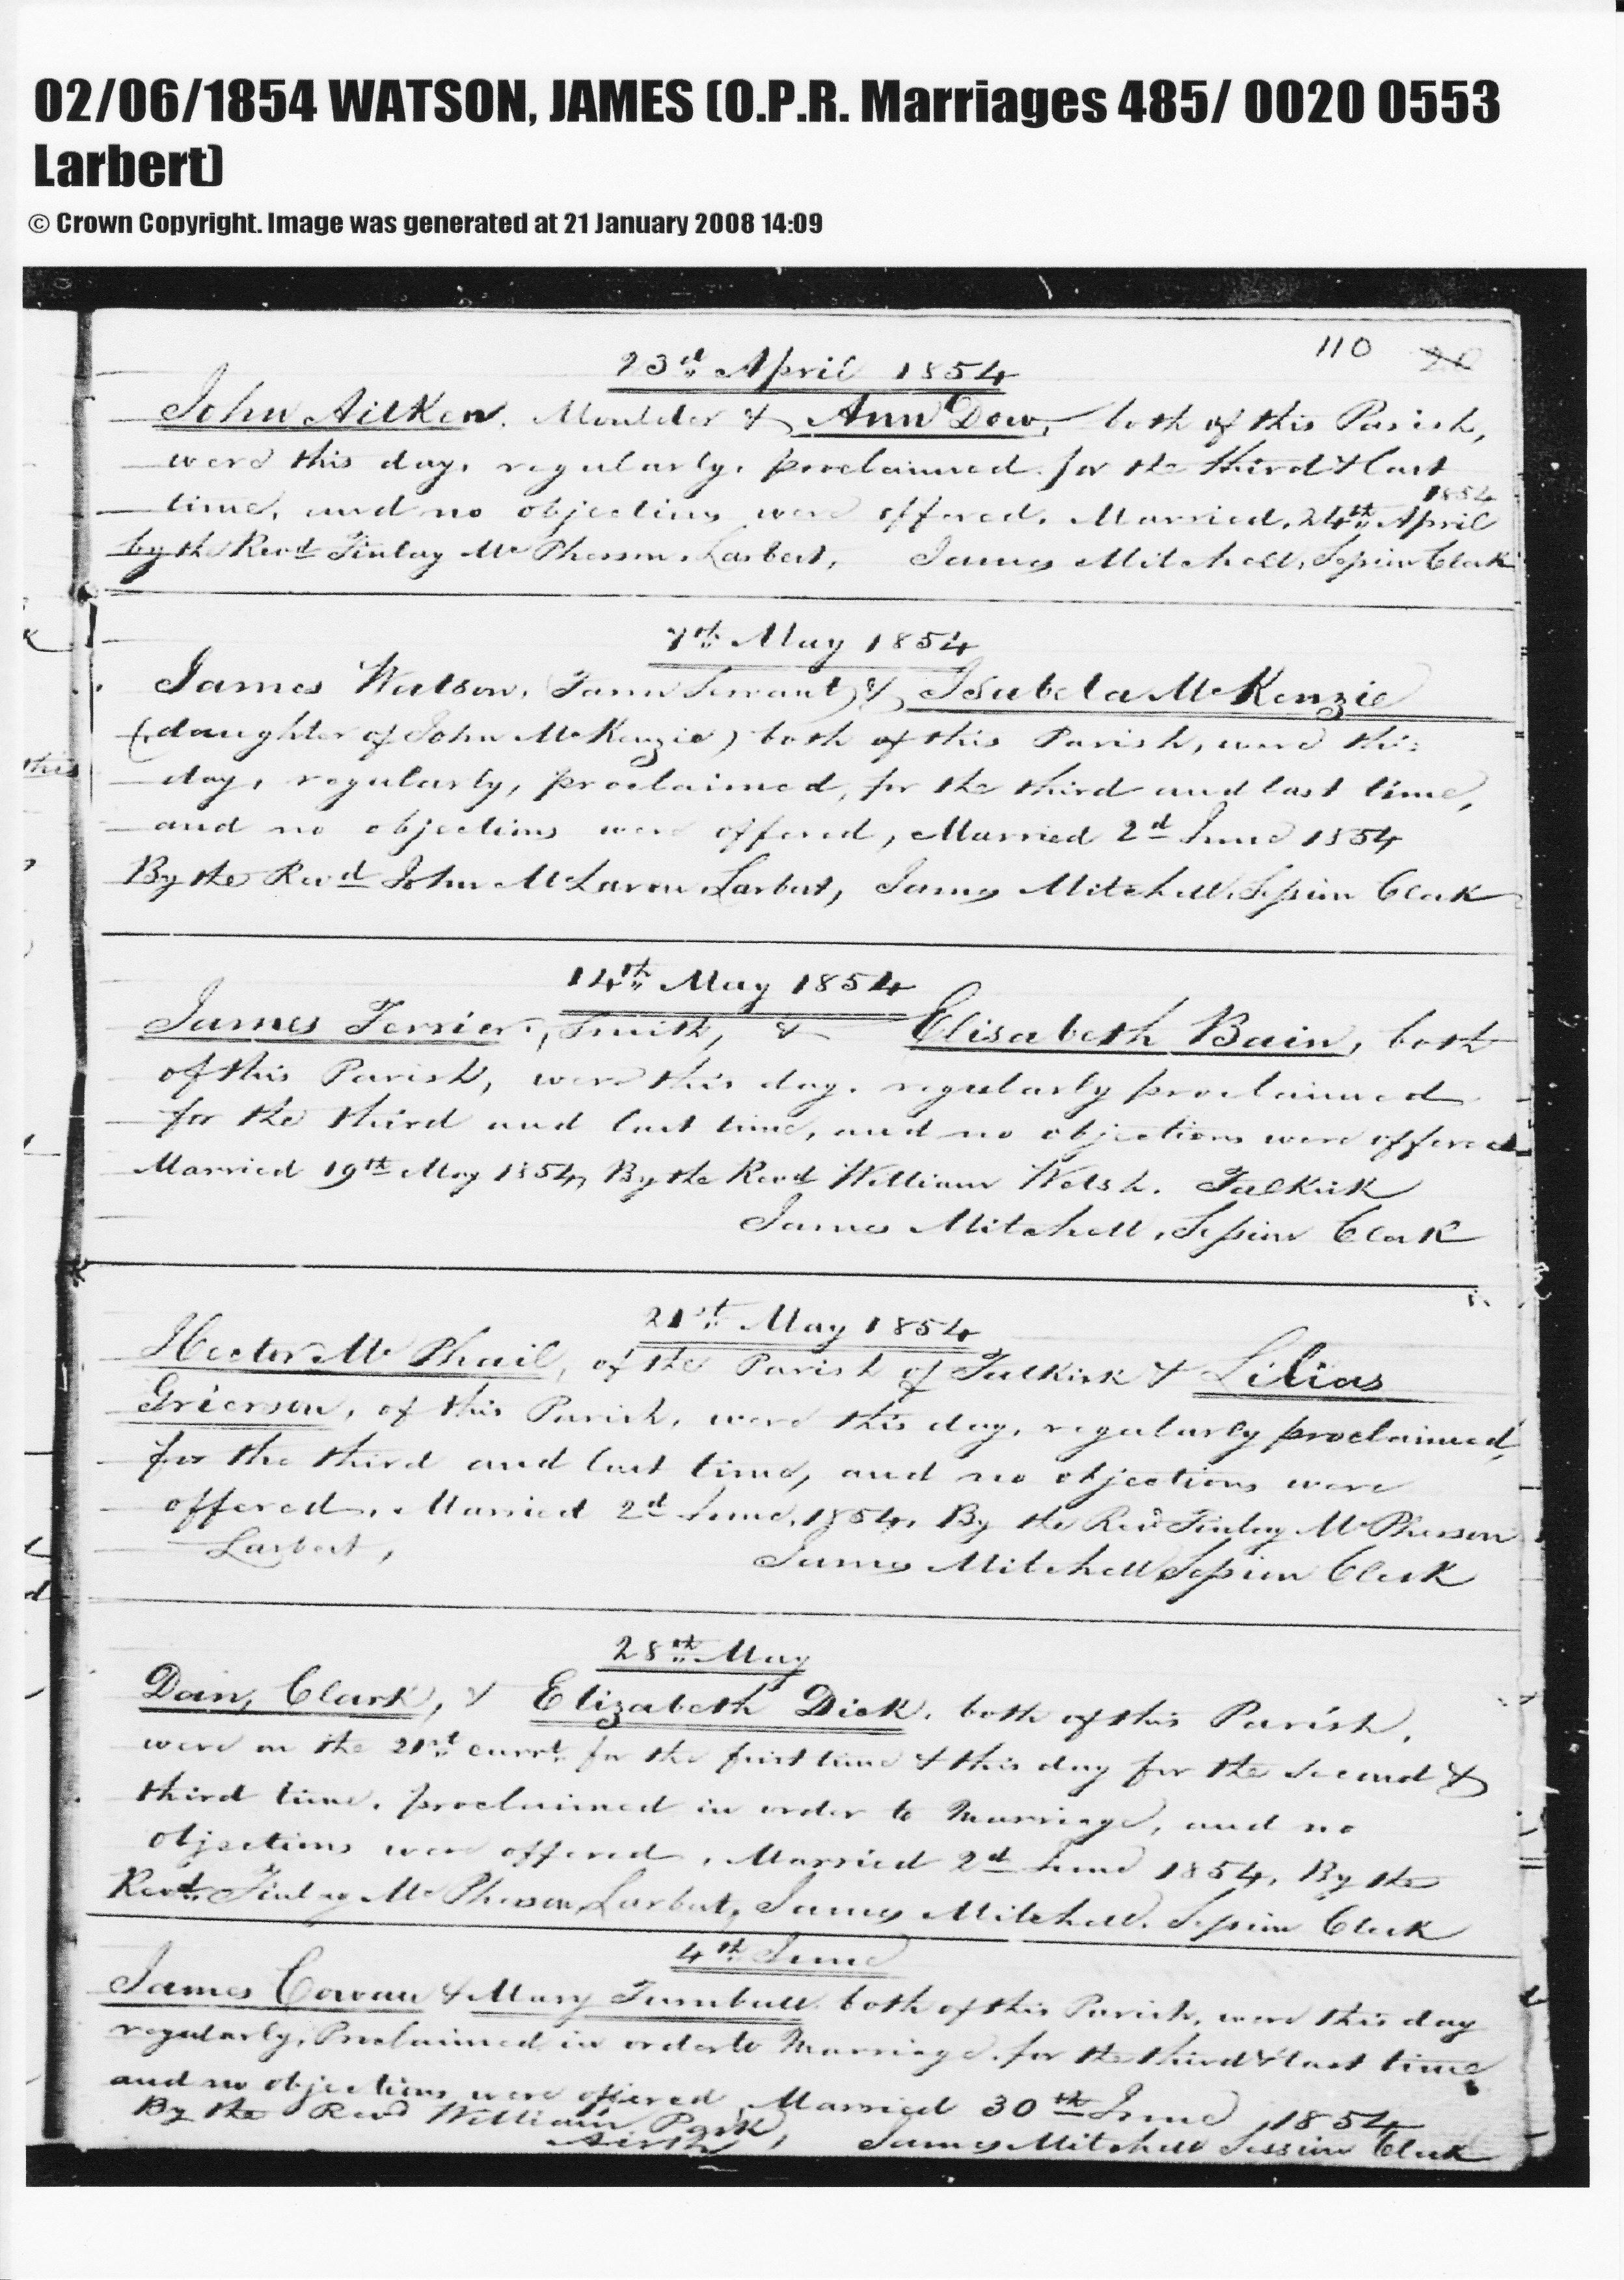 02/06/1854 WATSON, JAMES (O.P.R. Marriages 485/ 0020 0553
Larbert)
© Crown Copyright. Image was generated at 21 January 2008 14:09
110
23d April 1854
John Aitken, Moulder & Ann Dow, both of this Parish,
were this day, regularly, proclaimed for the third & last
1854
time, and no objections were offered. Married, 24th April
by the Revd Finlay McPherson, Larbert, James Mitchell, Session Clerk
7th May 1854
James Watson, (Farm Servant) & Isabela McKenzie
(daughter of John McKenzie) both of this Parish, were this
day, regularly, proclaimed, for the third and last time,
and no objections were offered, Married 2d June 1854
By the Revd John McLaren Larbert, James Mitchell, Session Clerk
this
14th May 1854
James Ferrier, Smith, & Elisabeth Bain, both
of this Parish, were this day, regularly proclaimed
for the third and last time, and no objections were offered
Married 19th May 1854, By the Revd William Welsh, Falkirk
James Mitchell, Session Clerk
21st May 1854
Hector McPhail, of the Parish of Falkirk & Lilias
Grierson, of this Parish, were this day, regularly proclaimed,
for the third and last time, and no objections were
offered, Married 2d June, 1854, By the Revd Finlay McPherson
Larbert, James Mitchell Session Clerk
28th May
Dan, Clark, & Elizabeth Dick, both of this Parish,
were on the 21st currt for the first time & this day for the second &
third time, proclaimed in order to Marriage, and no
objections were offered, Married 2d June 1854, By the
Revd Finlay McPherson, Larbert, James Mitchell, Session Clerk
4th June
James Cowan & Mary Turnbull both of this Parish, were this day
regularly, Proclaimed in order to Marriage, for the third & last time
and no objections were offered, Married 30th June 1854
By the Revd William Park,
Airth, James Mitchell Session Clerk